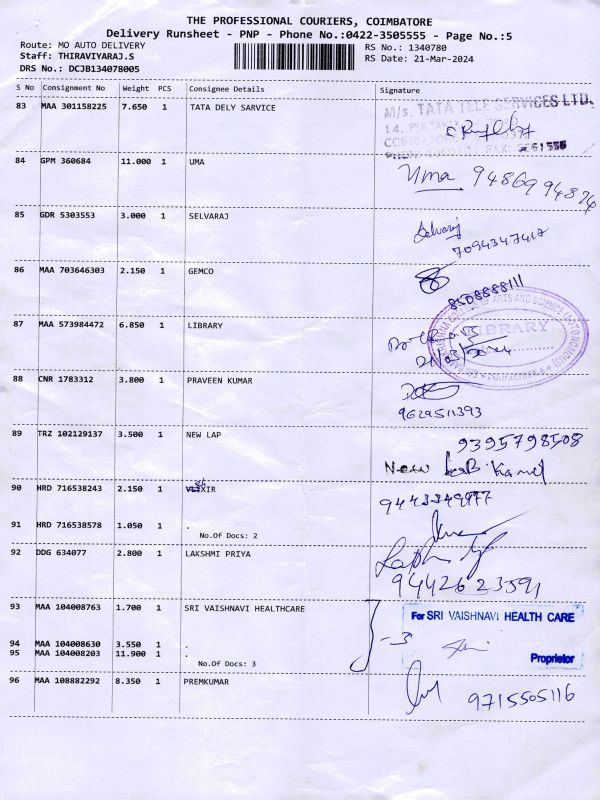 THE PROFESSIONAL COURIERS, COIMBATORE
Delivery Runsheet - PNP - Phone No.:0422-3505555 - Page No.:5
Route: MO AUTO DELIVERY RS No.: 1340780
Staff: THIRAVIYARAJ.S RS Date: 21-Mar-2024
DRS No.: DCJB134078005
S No Consignment No Weight PCS Consignee Details Signature
83 MAA 301158225 7.650 1 TATA DELY SARVICE
M/s. TATA TELE SERVICES LTD.
84 GPM 360684 11.000 1 UMA
Uma 9486994824
85 GDR 5303553 3.000 1 SELVARAJ
Selvaraj
7094347417
86 MAA 703646303 2.150 1 GEMCO
8508888111
87 MAA 573984472 6.850 1 LIBRARY
LIBRARY
88 CNR 1783312 3.800 1 PRAVEEN KUMAR
9629511393
89 TRZ 102129137 3.500 1 NEW LAP
9395798508
New
90 HRD 716538243 2.150 1
9443349977
91 HRD 716538578 1.050 1 .
No.Of Docs: 2
92 DDG 634077 2.800 1 LAKSHMI PRIYA
9442623591
93 MAA 104008763 1.700 1 SRI VAISHNAVI HEALTHCARE
For SRI VAISHNAVI HEALTH CARE
94 MAA 104008630 3.550 1 .
-3
95 MAA 104008203 11.900 1 .
Proprietor
No.Of Docs: 3
96 MAA 108882292 8.350 1 PREMKUMAR
9715505116